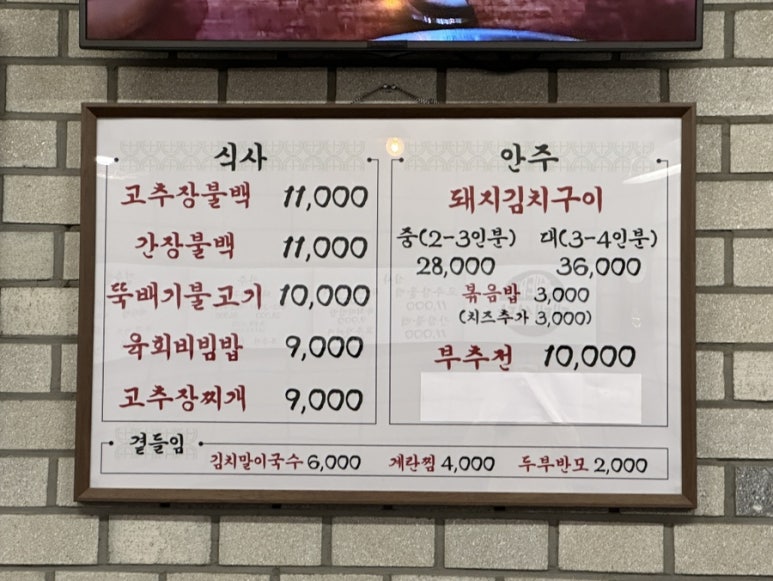 식사
고추장불백 11,000
간장불백 11,000
뚝배기불고기 10,000
육회비빔밥 9,000
고추장찌개 9,000
안주
돼지김치구이
중(2-3인분) 대(3-4인분)
28,000 36,000
볶음밥 3,000
(치즈추가 3,000)
부추전 10,000
곁들임
김치말이국수 6,000 계란찜 4,000 두부반모 2,000